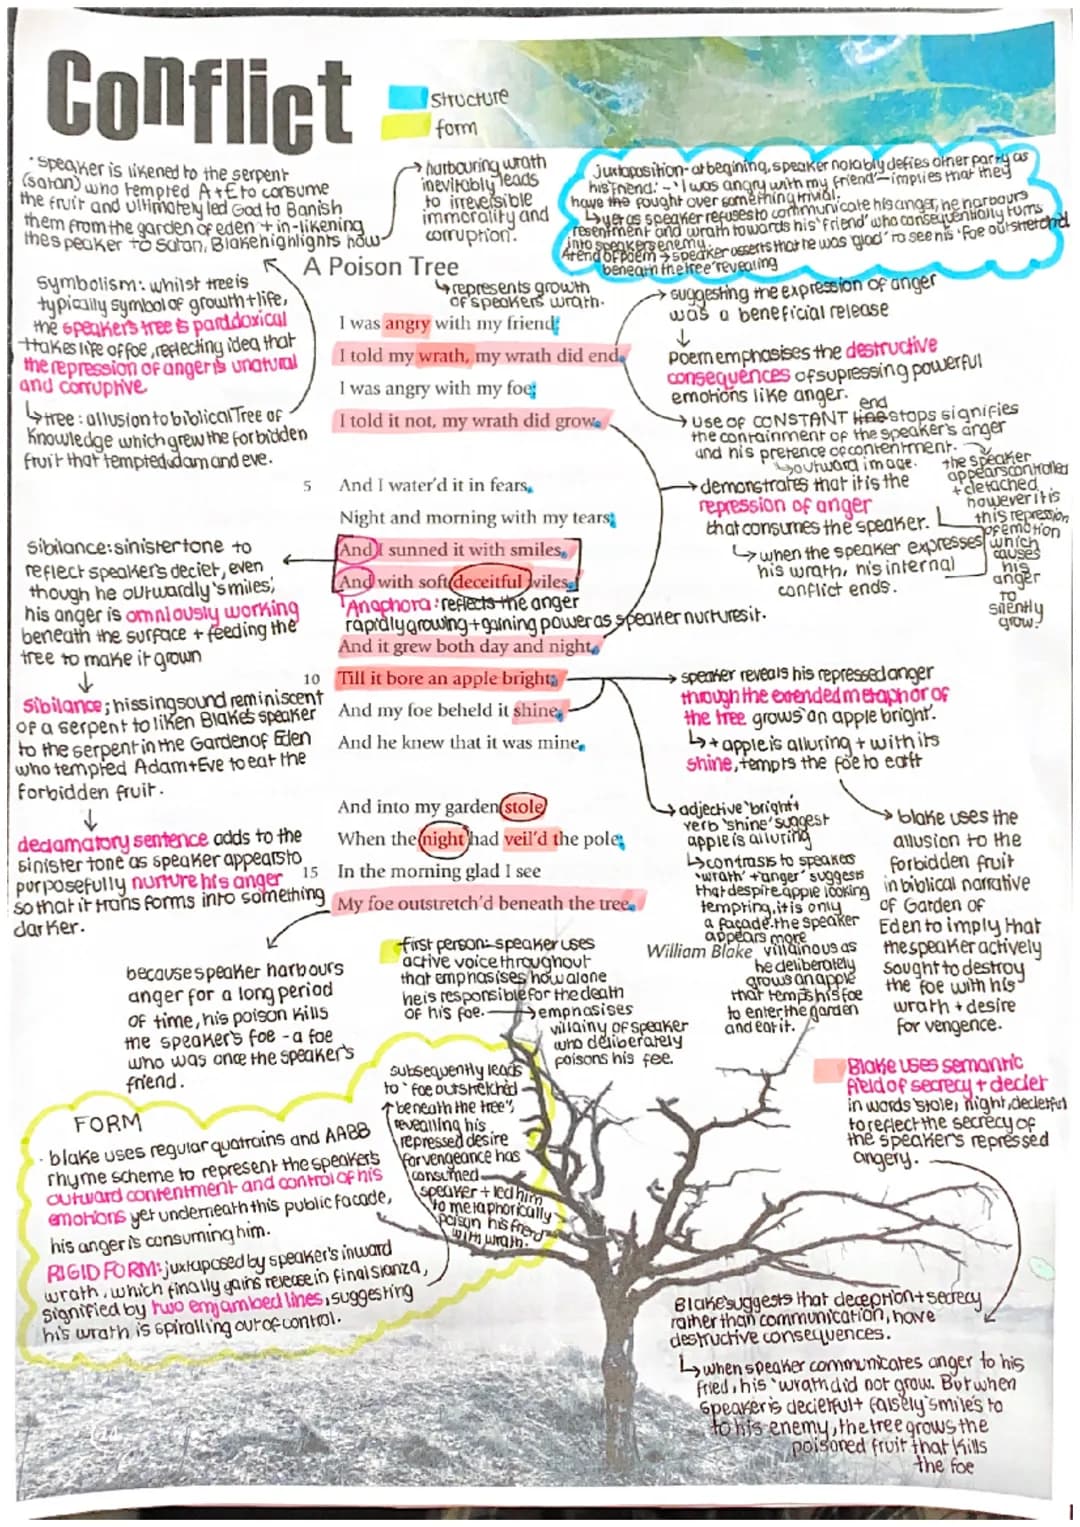 Conflict
structure
form
· speaker is likened to the serpent
(satan) who tempted A+E to consume
the fruit and ultimately led God to Banish
them from the garden of eden + in-likening
the speaker to satan, Blake highlights how
harbouring wrath
inevitably leads
to irreversible
immorality and
corruption.
Juxtaposition - at begining, speaker notably defies other party as
his 'friend.' - 'I was angry with my friend' - implies that they
have the fought over something trivial.
↳ yet as speaker refuses to communicate his anger, he harbours
resentment and wrath towards his 'friend' who consequentially turns
into speakers enemy.
At end of poem → speaker asserts that he was 'glad' to see his 'foe outstretchd
beneath the tree' revealing
A Poison Tree
↳ represents growth
of speakers wrath.
Symbolism: whilst tree is
typically symbol of growth + life,
the speaker's tree is paradoxical
+takes life of foe, reflecting idea that
the repression of anger is unatural
and corruptive
↳ tree : allusion to biblical Tree of
Knowledge which grew the forbidden
fruit that tempted adam and eve.
I was angry with my friend;
I told my wrath, my wrath did end.
I was angry with my foe;
I told it not, my wrath did grow.
→ suggesting the expression of anger
was a beneficial release
↓
Poem emphasises the destructive
consequences of supressing powerful
emotions like anger.
end
→ use of CONSTANT line stops signifies
the containment of the speaker's anger
and his pretence of contentment.
↳ outward image.
the speaker
appears controlled
+ detached,
however it is
this repression
of emotion
which
causes
his
anger
to
silently
grow.
→ demonstrates that it is the
repression of anger
that consumes the speaker.
↳ when the speaker expresses
his wrath, his internal
conflict ends.
5 And I water'd it in fears,
Night and morning with my tears;
And I sunned it with smiles,
And with soft deceitful wiles.
Anaphora: reflects the anger
rapidly growing + gaining power as speaker nurtures it.
And it grew both day and night,
10 Till it bore an apple bright;
And my foe beheld it shine,
And he knew that it was mine,
sibilance: sinister tone to
reflect speaker's deciet, even
though he outwardly 'smiles',
his anger is omniously working
beneath the surface + feeding the
tree to make it grown
↓
sibilance; hissing sound reminiscent
of a serpent to liken Blakes speaker
to the serpent in the Garden of Eden
who tempted Adam + Eve to eat the
forbidden fruit.
↓
declamatory sentence adds to the
sinister tone as speaker appears to
purposefully nurture his anger
so that it transforms into something
darker.
→ speaker reveals his repressed anger
through the extended metaphor of
the tree grows 'an apple bright'.
↳ + apple is alluring + with its
shine, tempts the foe to eat it
And into my garden stole
When the night had veil'd the pole;
15 In the morning glad I see
My foe outstretch'd beneath the tree.
William Blake
adjective 'bright' +
verb 'shine' suggest
apple is alluring
↳ contrasts to speakers
'wrath' + 'anger' suggests
that despite apple looking
tempting, it is only
a façade. the speaker
appears more
villainous as
he deliberately
grows an apple
that temps his foe
to enter the garden
and eat it.
blake uses the
allusion to the
forbidden fruit
in biblical narrative
of Garden of
Eden to imply that
the speaker actively
sought to destroy
the foe with his
wrath + desire
for vengence.
because speaker harbours
anger for a long period
of time, his poison kills
the speaker's foe - a foe
who was once the speaker's
friend.
first person: speaker uses
active voice throughout
that emphasises how alone
he is responsible for the death
of his foe. → emphasises
villainy of speaker
who deliberately
poisons his foe.
Blake uses semantic
field of secrecy + deciet
in words 'stole, night, decietful
to reflect the secrecy of
the speaker's repressed
angery.
FORM
· blake uses regular quatrains and AABB
rhyme scheme to represent the speaker's
outward contentment and control of his
emotions yet underneath this public facade,
his anger is consuming him.
RIGID FORM: juxtaposed by speaker's inward
wrath, which finally gains release in final stanza,
signified by two enjambed lines, suggesting
his wrath is spiralling out of control.
subsequently leads
to 'foe outstretched
beneath the tree',
revealling his
repressed desire
for vengeance has
consumed
speaker + led him
to metaphorically
poison his friend
with wrath.
Blake suggests that deception + secrecy
rather than communication, have
destructive consequences.
↳ when speaker communicates anger to his
fried, his 'wrath did not grow. But when
speaker is decietful + falsely 'smiles' to
to his enemy, the tree grows the
poisoned fruit that kills
the foe